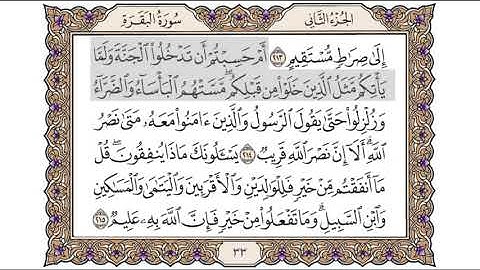 الجزء الثاني
سورة البقرة
إِلَىٰ صِرَٰطٍ مُّسْتَقِيمٍ ٢١٣ أَمْ حَسِبْتُمْ أَن تَدْخُلُوا۟ ٱلْجَنَّةَ وَلَمَّا
يَأْتِكُم مَّثَلُ ٱلَّذِينَ خَلَوْا۟ مِن قَبْلِكُم ۖ مَّسَّتْهُمُ ٱلْبَأْسَآءُ وَٱلضَّرَّآءُ
وَزُلْزِلُوا۟ حَتَّىٰ يَقُولَ ٱلرَّسُولُ وَٱلَّذِينَ ءَامَنُوا۟ مَعَهُۥ مَتَىٰ نَصْرُ
ٱللَّهِ ۗ أَلَآ إِنَّ نَصْرَ ٱللَّهِ قَرِيبٌ ٢١٤ يَسْـَٔلُونَكَ مَاذَا يُنفِقُونَ ۖ قُلْ
مَآ أَنفَقْتُم مِّنْ خَيْرٍ فَلِلْوَٰلِدَيْنِ وَٱلْأَقْرَبِينَ وَٱلْيَتَٰمَىٰ وَٱلْمَسَٰكِينِ
وَٱبْنِ ٱلسَّبِيلِ ۗ وَمَا تَفْعَلُوا۟ مِنْ خَيْرٍ فَإِنَّ ٱللَّهَ بِهِۦ عَلِيمٌ ٢١٥
٣٣